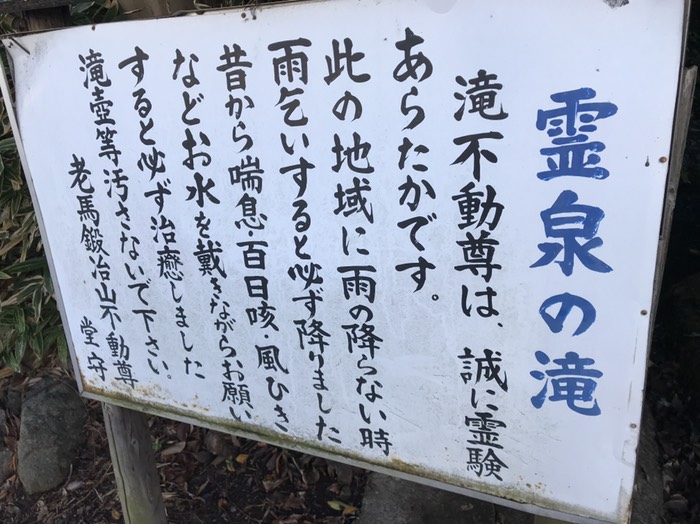 霊泉の滝
滝不動尊は、誠に霊験
あらたかです。
此の地域に雨の降らない時
雨乞いすると必ず降りました
昔から喘息・百日咳・風ひき
などお水を戴きながらお願い
すると必ず治癒しました
滝壺等汚さないで下さい。
老馬鍛冶山不動尊
堂守